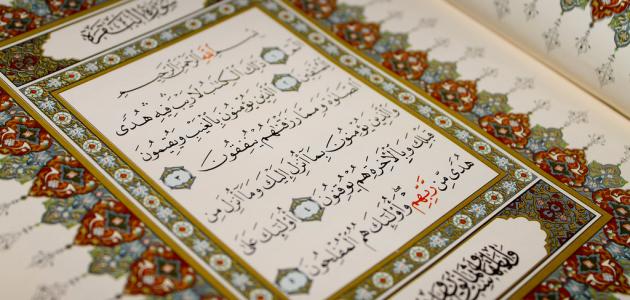 سُورَةُ الْبَقَرَةِ
بِسْمِ اللَّهِ الرَّحْمَٰنِ الرَّحِيمِ
الم ذَٰلِكَ الْكِتَٰبُ لَا رَيْبَ فِيهِ هُدًى
لِلْمُتَّقِينَ الَّذِينَ يُؤْمِنُونَ بِالْغَيْبِ وَيُقِيمُونَ
الصَّلَوٰةَ وَمِمَّا رَزَقْنَٰهُمْ يُنْفِقُونَ
وَالَّذِينَ يُؤْمِنُونَ بِمَا أُنْزِلَ إِلَيْكَ وَمَا أُنْزِلَ مِنْ
قَبْلِكَ وَبِالْآخِرَةِ هُمْ يُوقِنُونَ أُولَٰئِكَ عَلَىٰ
هُدًى مِنْ رَبِّهِمْ وَأُولَٰئِكَ هُمُ الْمُفْلِحُونَ